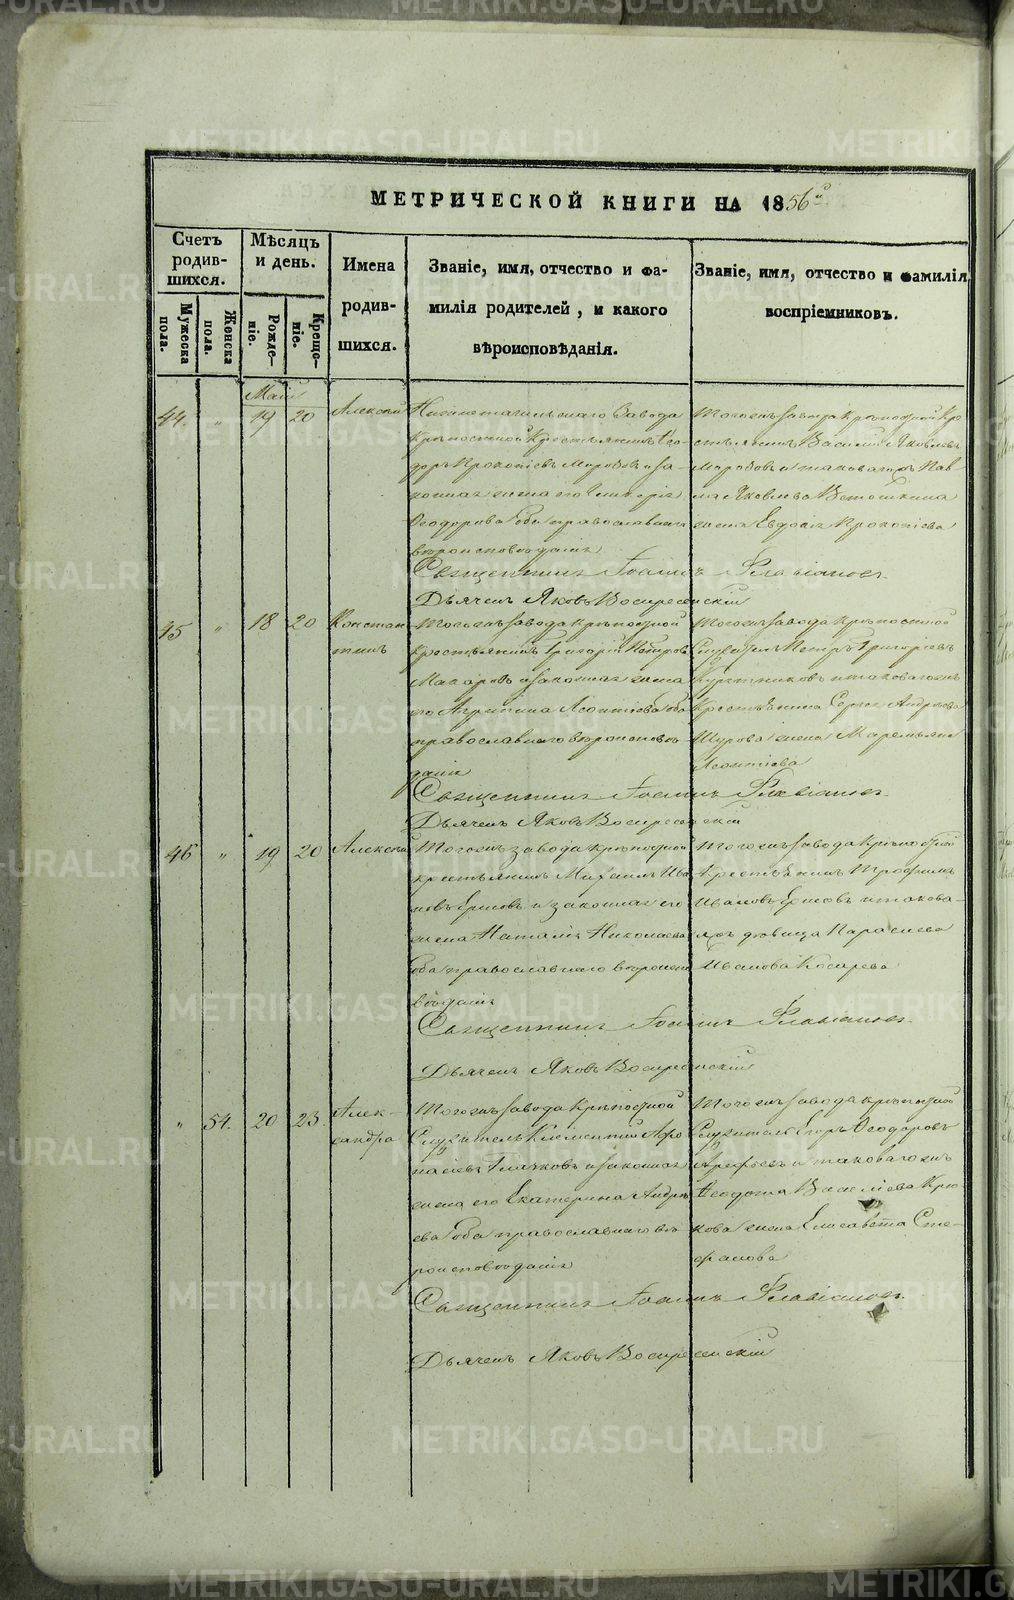 МЕТРИЧЕСКОЙ КНИГИ НА 1856й
Счетъ родив-
шихся.
Мѣсяцъ
и день.
Имена
родив-
шихся.
Званіе, имя, отчество и фа-
милія родителей, и какого
вѣроисповѣданія.
Званіе, имя, отчество и фамилія
воспріемниковъ.
Мужеска
пола.
Женска
пола.
Рожде-
ніе.
Креще-
ніе.
Май
44. „ 19 20 Алексѣй
Нижнетагильскаго Завода
крѣпостной Крестьянинъ Ѳео-
доръ Прокопіевъ Морозовъ и за-
конная жена его Гликерія
Ѳеодорова оба православнаго
вѣроисповѣданія
Тогожъ завода крѣпостной Кре-
стьянинъ Василій Яковлевъ
Морозовъ и таковагожъ Пав-
ла Яковлева Ветошкина
жена Евдокія Прокопіева
Священникъ Іоаннъ Флавіановъ
Дьячекъ Яковъ Воскресенскій
45 „ 18 20 Констан
тинъ
Тогожъ завода крѣпостной
крестьянинъ Григорій Петровъ
Макаровъ и законная жена
его Агрипина Леонтіева оба
православнаго вѣроисповѣ
данія
Тогожъ завода крѣпостной
Служитель Петръ Григорьевъ
и таковагожъ
Крестьянина Сергея Андреева
Шурова жена Маремьяна
Леонтіева
Священникъ Іоаннъ Флавіановъ
Дьячекъ Яковъ Воскресенскій
46 „ 19 20 Алексѣй
Тогожъ завода крѣпостной
крестьянинъ Михаилъ Ива
новъ Ершовъ и законная его
жена Наталія Николаева
оба православнаго вѣроиспо
вѣданія
Тогожъ завода крѣпостной
Крестьянинъ Трофимъ
Ивановъ Ершовъ и такова-
яжъ дѣвица Параскева
Иванова Косарева
Священникъ Іоаннъ Флавіановъ
Дьячекъ Яковъ Воскресенскій
„ 54. 20 23. Алек-
сандра
Тогожъ завода крѣпостной
Служитель Климентій Афо
насіевъ и законная
жена его Екатерина Андре
ева оба православнаго вѣ
роисповѣданія
Тогожъ завода крѣпостной
Служитель Егоръ Ѳеодоровъ
Арефьевъ и таковагожъ
Ѳеодота Василіева Крю-
кова жена Елисавета Сте-
фанова
Священникъ Іоаннъ Флавіановъ
Дьячекъ Яковъ Воскресенскій
METRIKI.GASO-URAL.RU